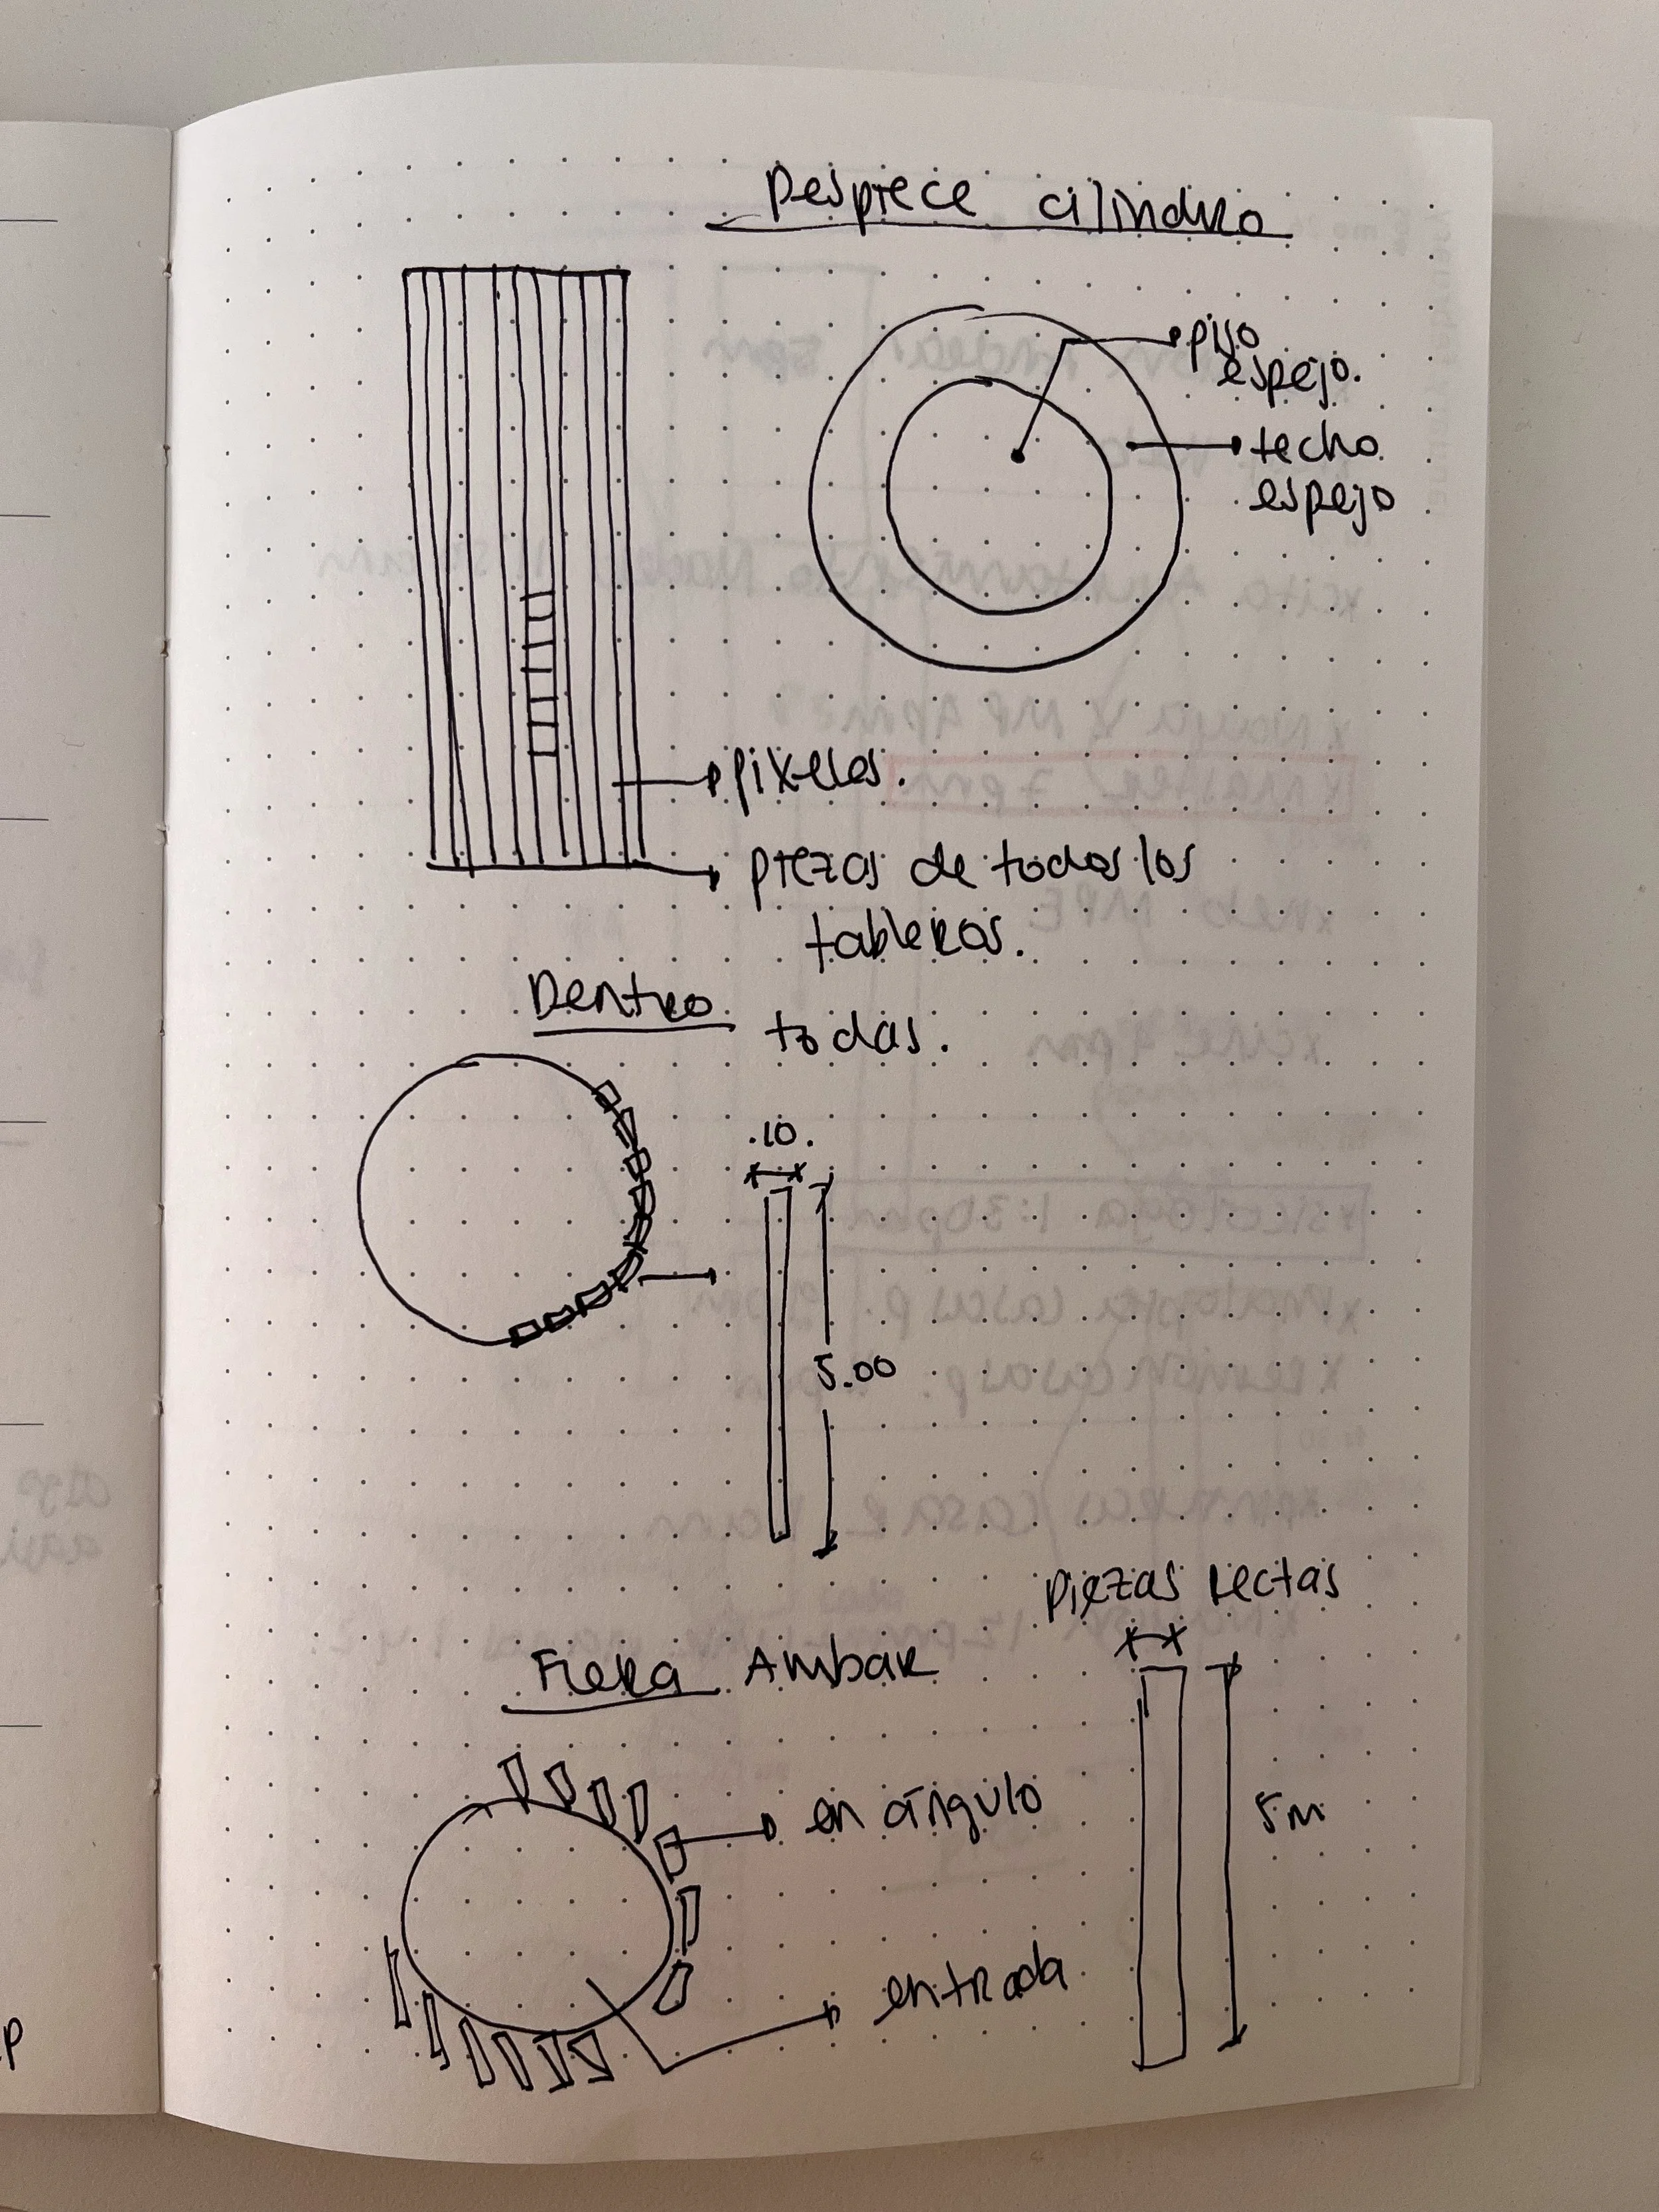 Despiece cilindro
piso
espejo.
techo
espejo
pixeles.
piezas de todos los
tableros.
Dentro
todas.
.10.
5.00
Piezas rectas
Fuera Ambar
en ángulo
5m
entrada